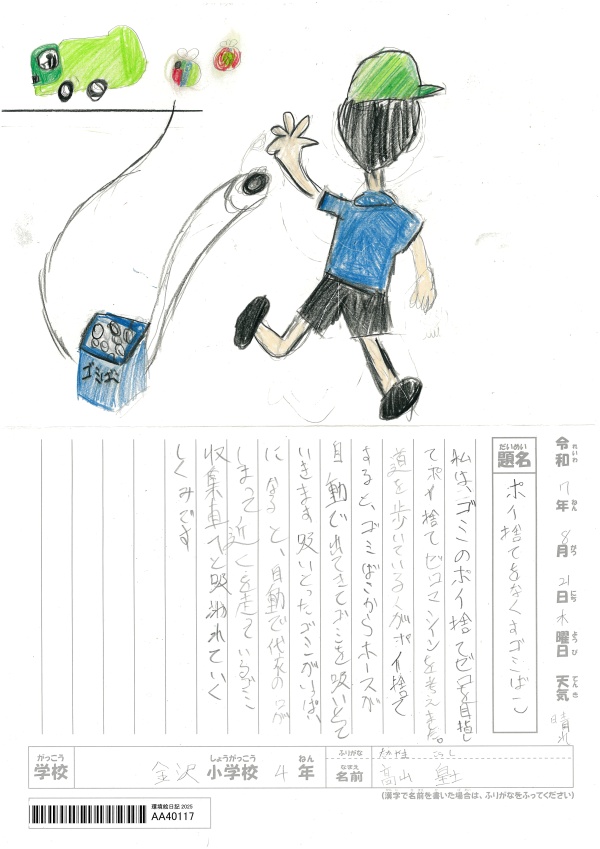 令和(れいわ)7年(ねん)8月(がつ)21日(にち)木曜日(ようび) 天気(てんき) 晴れ
題名(だいめい) ポイ捨てをなくすゴミばこ
私は、ゴミのポイ捨てゼロを目指し
てポイ捨てゼロマシンを考えます。
道を歩いている人がポイ捨て
すると、ゴミばこからホースが
自動で出てきてゴミを吸いとって
いきます吸いとったゴミがいっぱい
になると、自動で の口が
しまって近くを走っているゴミ
収集車へと吸われていく
しくみです
学校(がっこう) 金沢 小学校(しょうがっこう) 4 年(ねん)
ふりがな
名前(なまえ) 高山
(漢字で名前を書いた場合は、ふりがなをふってください)
環境絵日記 2025
AA40117